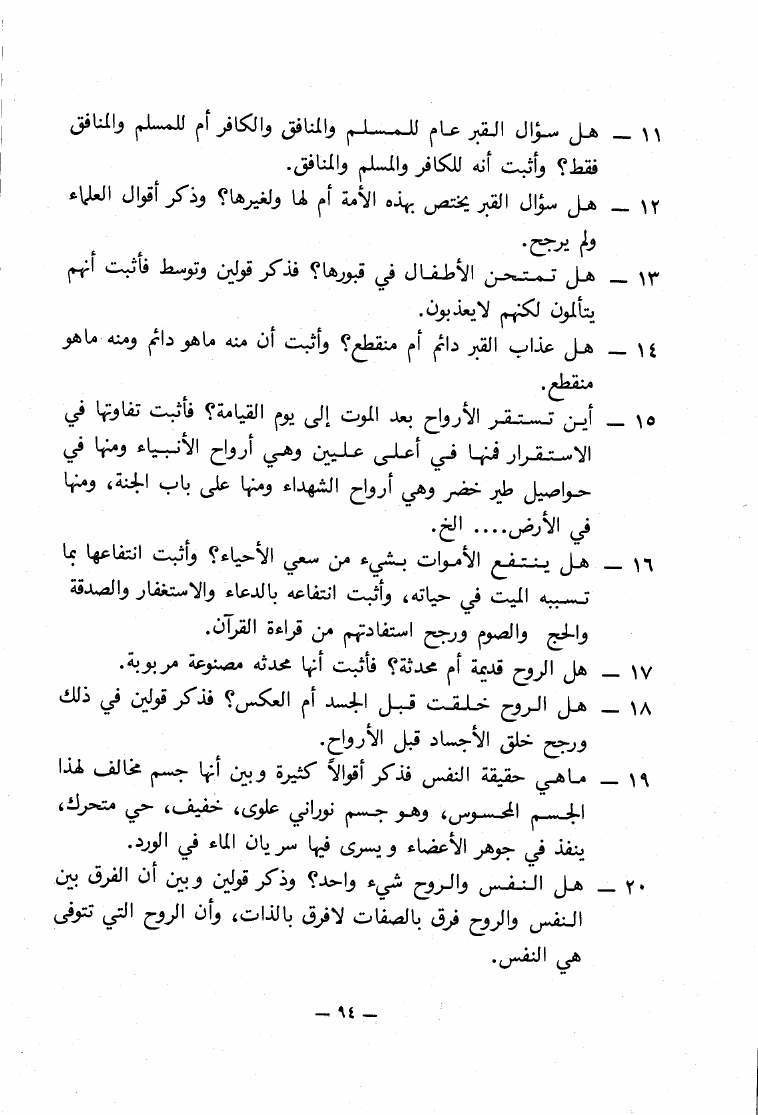 ١١ — هل سؤال القبر عام للمسلم والمنافق والكافر أم للمسلم والمنافق
فقط؟ وأثبت أنه للكافر والمسلم والمنافق.
١٢ — هل سؤال القبر يختص بهذه الأمة أم لها ولغيرها؟ وذكر أقوال العلماء
ولم يرجح.
١٣ — هل تمتحن الأطفال في قبورها؟ فذكر قولين وتوسط فأثبت أنهم
يتألمون لكنهم لايعذبون.
١٤ — هل عذاب القبر دائم أم منقطع؟ وأثبت أن منه ماهو دائم ومنه ماهو
منقطع.
١٥ — أين تستقر الأرواح بعد الموت إلى يوم القيامة؟ فأثبت تفاوتها في
الاستقرار فمنها في أعلى عليين وهي أرواح الأنبياء ومنها في
حواصيل طير خضر وهي أرواح الشهداء ومنها على باب الجنة، ومنها
في الأرض.... الخ.
١٦ — هل ينتفع الأموات بشيء من سعي الأحياء؟ وأثبت انتفاعها بما
تسببه الميت في حياته، وأثبت انتفاعه بالدعاء والاستغفار والصدقة
والحج والصوم ورجح استفادتهم من قراءة القرآن.
١٧ — هل الروح قديمة أم محدثة؟ فأثبت أنها محدثه مصنوعة مربوبة.
١٨ — هل الروح خلقت قبل الجسد أم العكس؟ فذكر قولين في ذلك
ورجح خلق الأجساد قبل الأرواح.
١٩ — ماهي حقيقة النفس فذكر أقوالاً كثيرة وبين أنها جسم مخالف لهذا
الجسم المحسوس، وهو جسم نوراني علوى، خفيف، حي متحرك،
ينفذ في جوهر الأعضاء ويسرى فيها سريان الماء في الورد.
٢٠ — هل النفس والروح شيء واحد؟ وذكر قولين وبين أن الفرق بين
النفس والروح فرق بالصفات لافرق بالذات، وأن الروح التي تتوفى
هي النفس.
— ٩٤ —